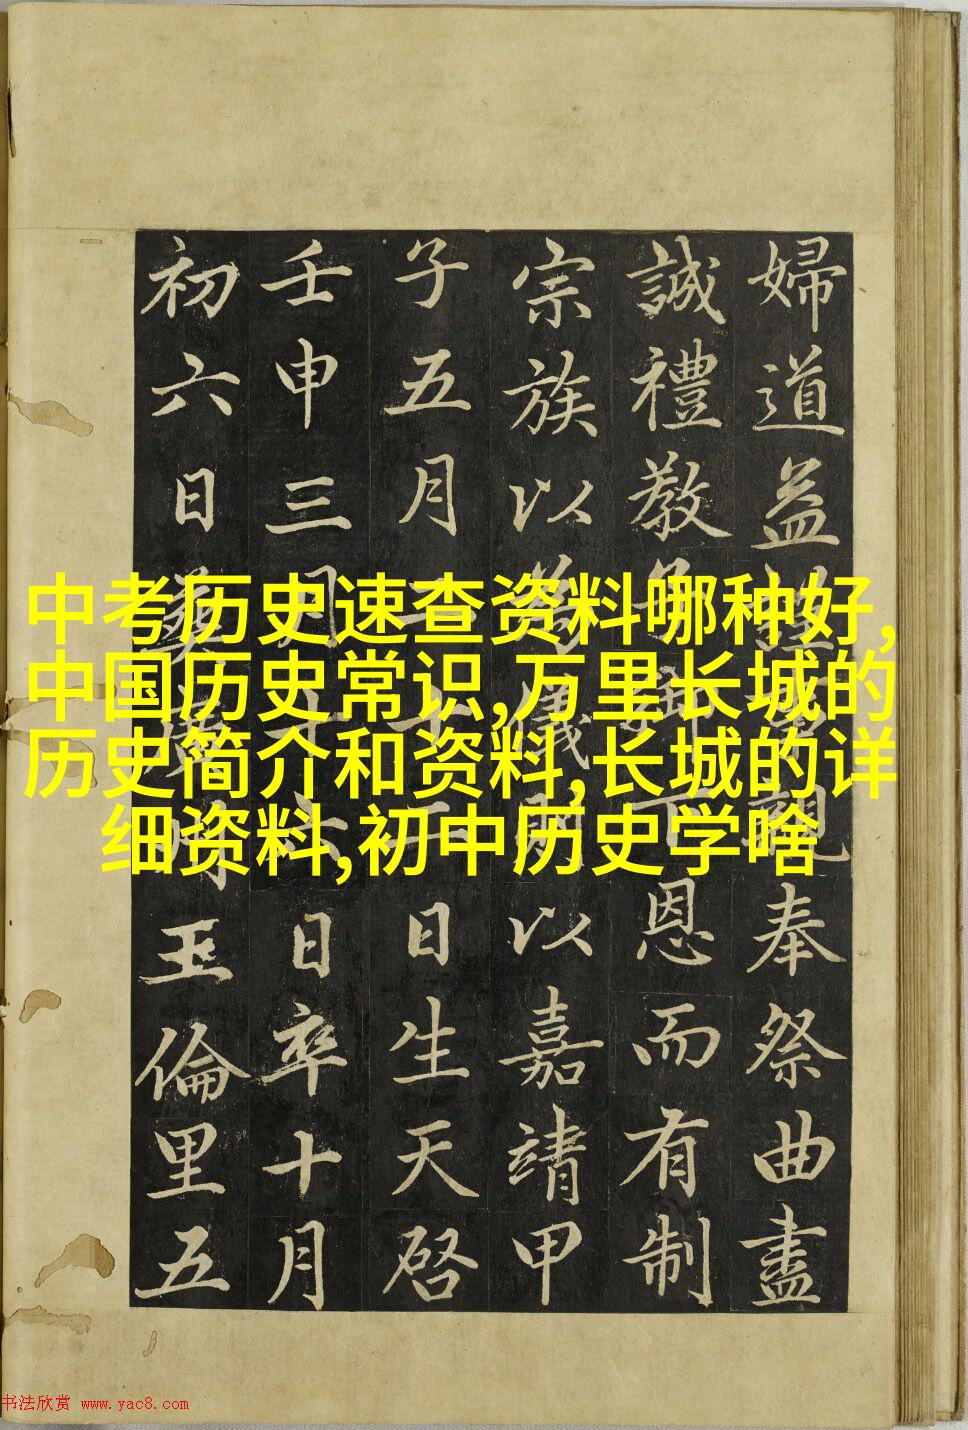 中考历史速查资料哪种好,
中国历史常识,万里长城的
历史简介和资料,长城的详
细资料,初中历史学啥
婦道益奉祭曲盡
誠禮教恩而有制
宗族以以嘉靖甲
子五月日生天啓
壬申三月日卒十月
初六日葬玉倫里五
书法欣赏 www.yac8.com